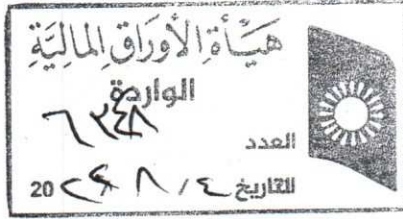 هَيْأةِ الأوْرَاقِ المَالِيَّةِ
الواردة
العدد
التاريخ ٤ / ٨ 20٢٤